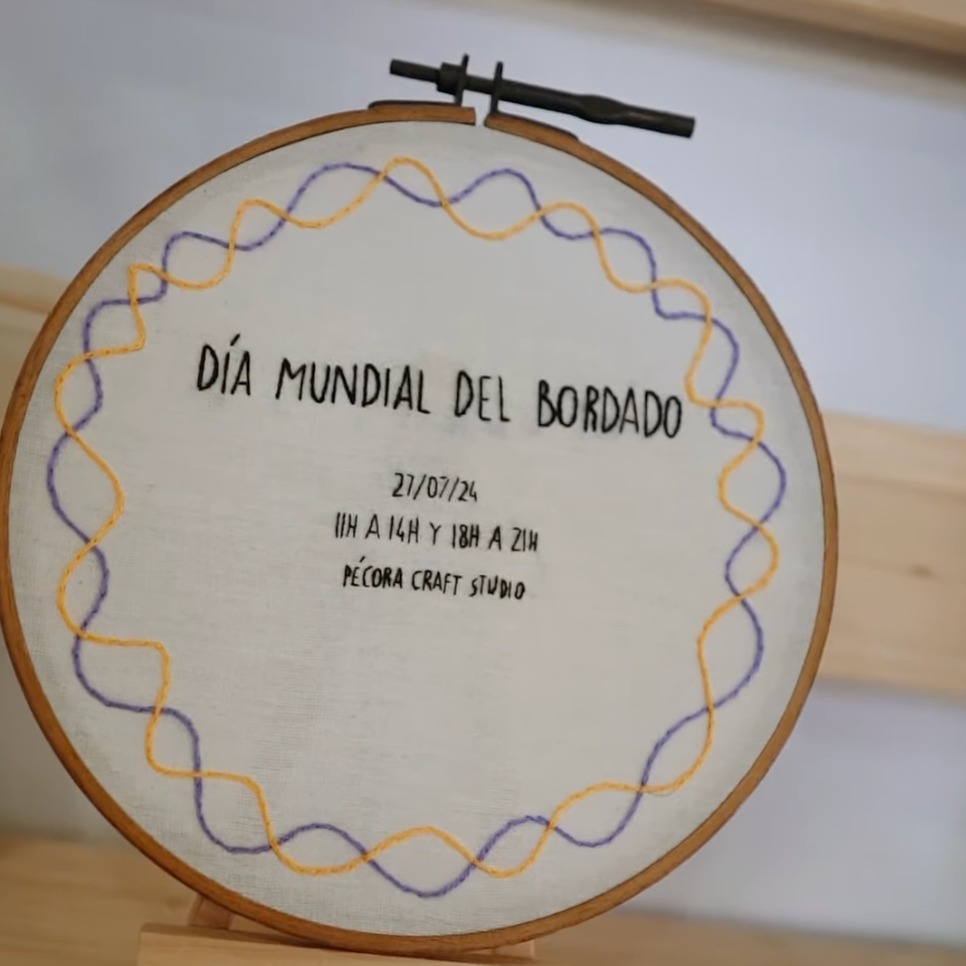 DÍA MUNDIAL DEL BORDADO
27/07/24
11H A 14H Y 18H A 21H
PÉCORA CRAFT STUDIO